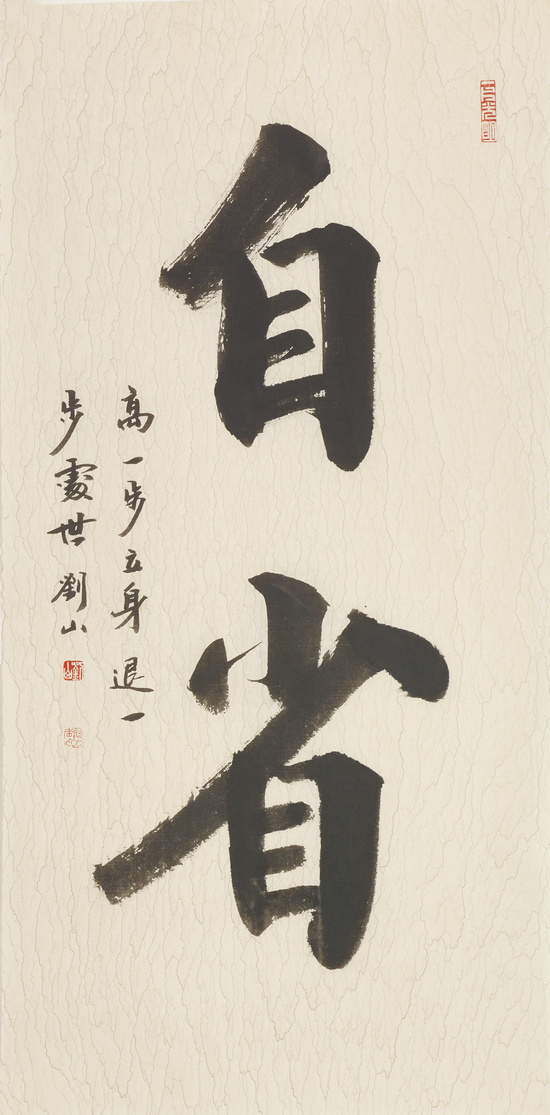 自省
高一步立身退一
步處世劉山